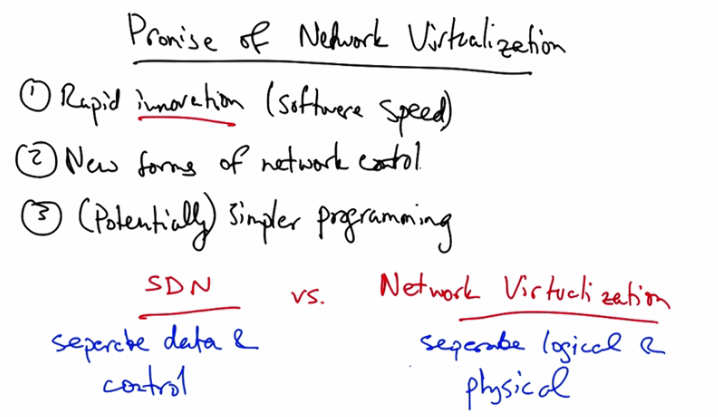 Promise of Network Virtualization
① Rapid innovation (Software Speed)
② New forms of network control
③ (Potentially) Simpler programming
SDN vs. Network Virtualization
seperate data & seperate logical &
control physical